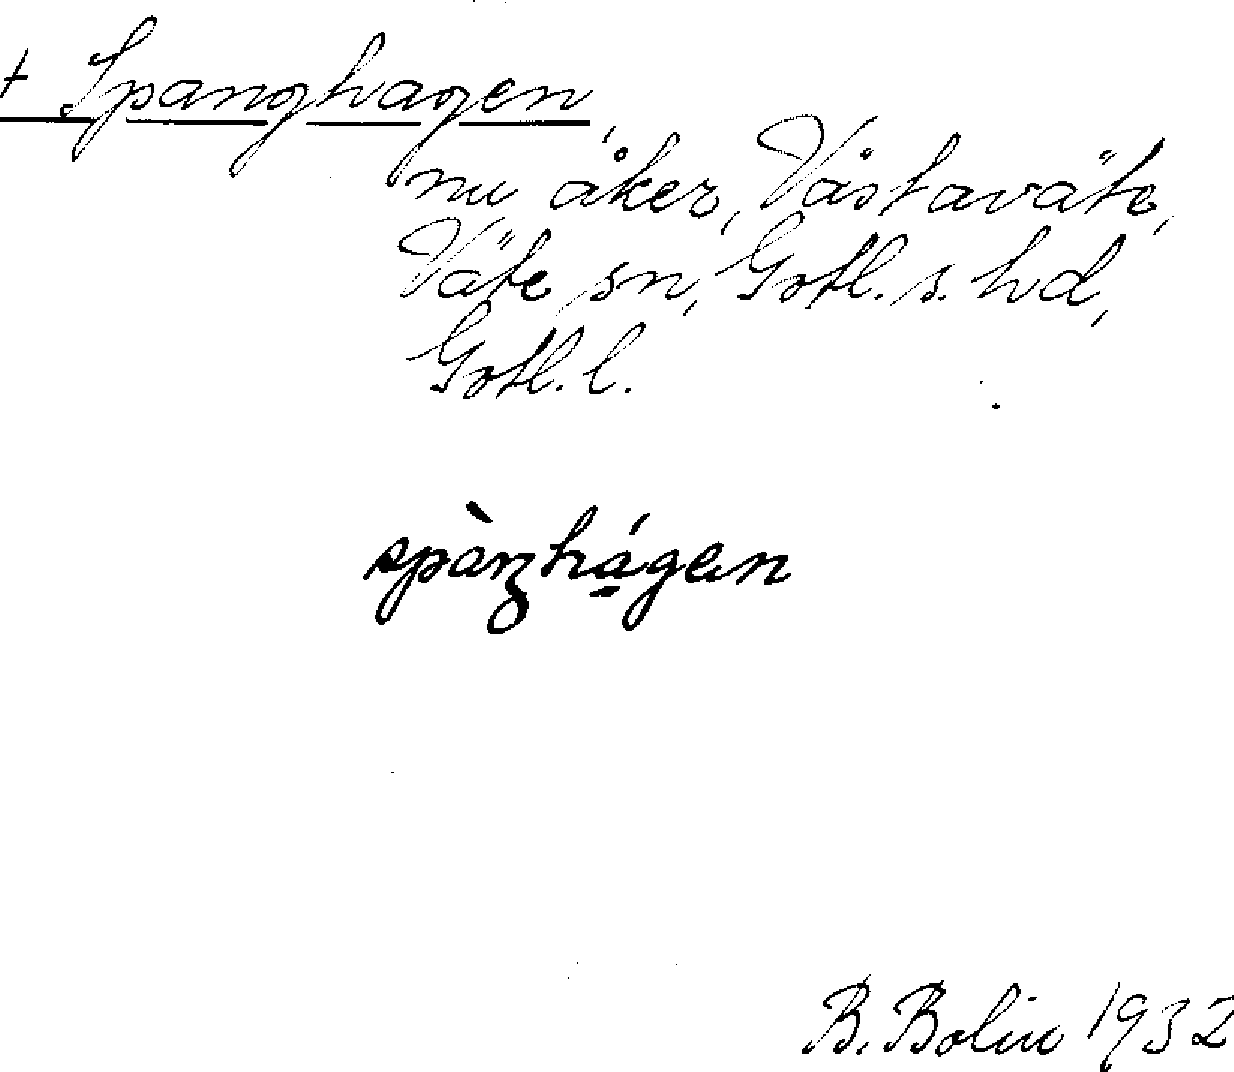 + Spanghagen,
nu åker, Västaväte,
Väte sn, Gotl. s. hd,
Gotl. l.
spàŋhágεn
B. Bolin 1932